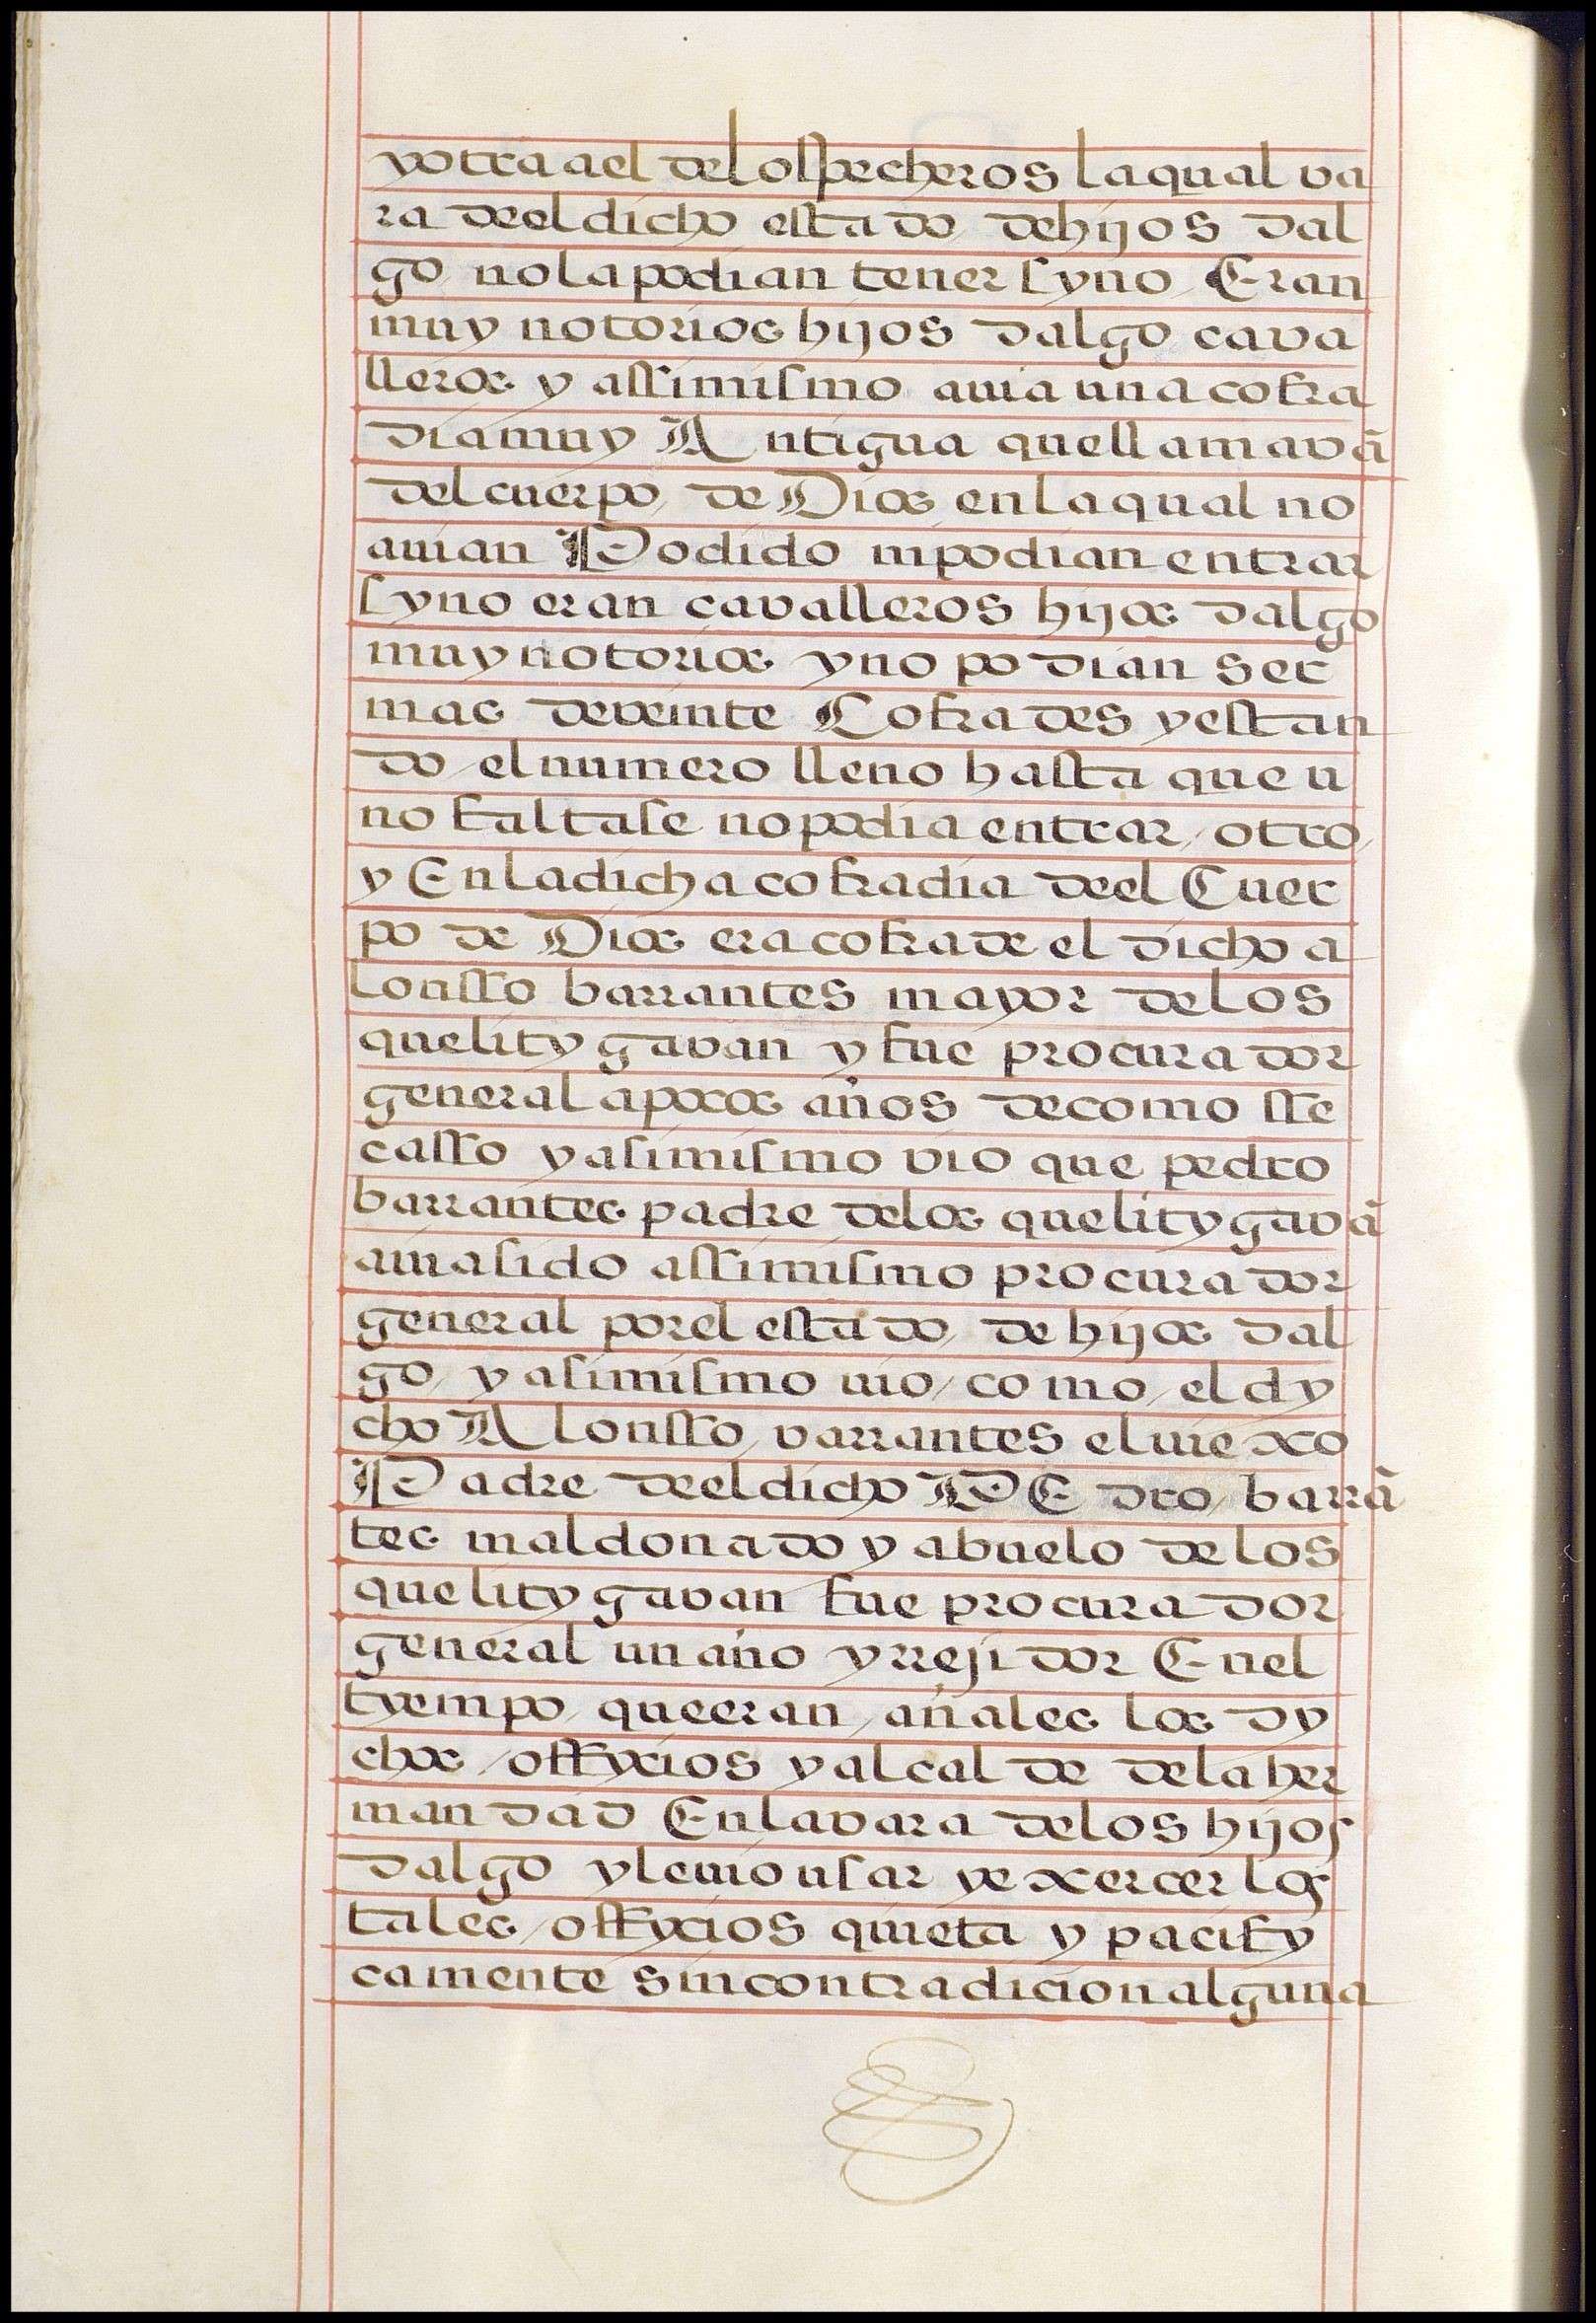 yotra a el delos pecheros laqual va
ra deel dicho estado de hijos dal
go no la podian tener syno Eran
muy notorios hijos dalgo cava
lleros y assimismo auia una cofra
dia muy Antigua que llamavã
del cuerpo de Dios en la qual no
auian Podido ni podian entrar
syno eran cavalleros hijos dalgo
muy notorios y no podian ser
mas de veinte Cofrades y estan
do el numero lleno hasta que u
no faltase no podia entrar otro
y En la dicha cofradia deel Cuer
po de Dios era cofrade el dicho a
lonsso barrantes mayor de los
que litygavan y fue procurador
general a pocos años de como sse
casso y asimismo vio que pedro
barrantes padre de los que litygavã
auia sido assimismo procurador
general por el estado de hijos dal
go y asimismo uio como el dy
cho Alonsso varrantes el uiexo
Padre deel dicho PEdro barrã
tes maldonado y abuelo de los
que litygavan fue procurador
general un año y rrejidor Enel
tyempo que eran añales los dy
chos offycios y alcalde de la her
mandad En la vara de los hijos
dalgo y le uio usar y exercer los
tales offycios quieta y pacify
camente sin contradicion alguna